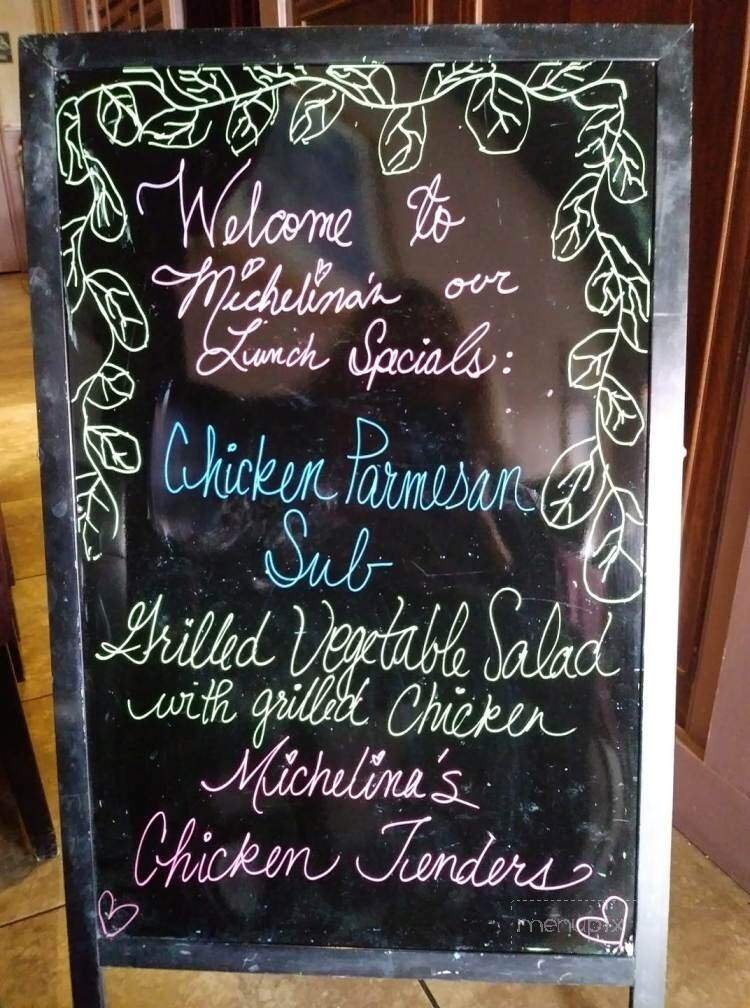 Welcome to
Michelina's our
Lunch Specials:
Chicken Parmesan
Sub
Grilled Vegetable Salad
with grilled Chicken
Michelina's
Chicken Tenders
menupix